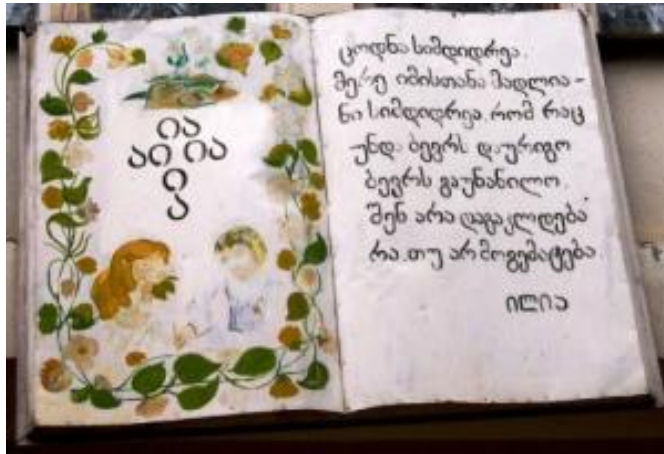 ია
აი ია
ი
ა
ცოდნა სიმდიდრეა.
მერე იმისთანა მადლია-
ნი სიმდიდრეა, რომ რაც
უნდ ბევრს დაურიგო
ბევრს გაუნანილო,
შენ არა დაგაკლდება
რა, თუ არ მოგემატება.
ილია